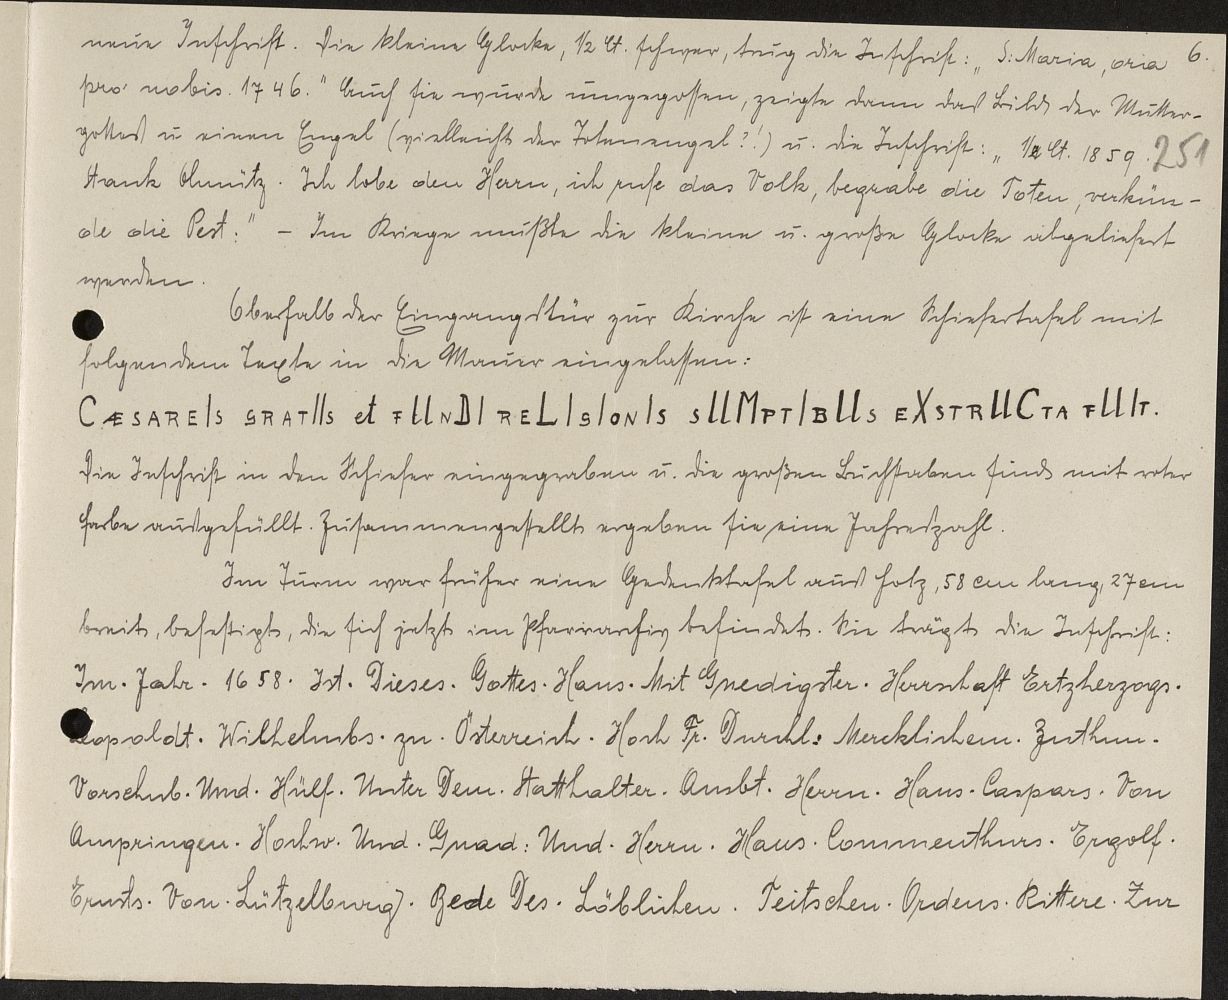 neue Inschrift. Die kleine Glocke, 1/2 Ct. schwer, trug die Inschrift: „S: Maria, oria 6.
pro nobis. 1746." Auch sie wurde umgegossen, zeigte dann das Bild der Mutter-
gottes u einen Engel (vielleicht der Totenengel?!) u. die Inschrift: „1/2 Ct. 1859. 251
Stank Olmütz. Ich lobe den Herrn, ich rufe das Volk, begrabe die Toten, verkün-
de die Pest." - Im Kriege mußte die kleine u. große Glocke abgeliefert
werden.
Oberhalb der Eingangstür zur Kirche ist eine Schiefertafel mit
folgendem Texte in die Mauer eingelassen:
CÆSAREIS GRATIIS et FUNDI RELIGIONIS SUMPTIBUS EXSTRUCTA FUIT.
Die Inschrift in den Schiefer eingegraben u. die großen Buchstaben sind mit roter
Farbe ausgefüllt. Zusammengestellt ergeben sie eine Jahreszahl.
Im Turm war früher eine Gedenktafel aus Holz, 58 cm lang, 27 cm
breit, befestigt, die sich jetzt im Pfarrarchiv befindet. Sie trägt die Inschrift:
Im. Jahr. 1658. Ist. Dieses. Gottes. Haus. Mit Gnedigster. Herrschaft Ertzherzogs.
Leopoldt. Wilhelmbs. zu. Österreich. Hoch Fr. Durchl: Mercklichem. Zuthun.
Vorschub. Und. Hülf. Unter Dem. Statthalter. Ambt. Herrn. Hans. Caspars. Von
Ampringen. Hochw. Und. Gnad: Und. Herrn. Haus. Commenthurs. Ergolf.
Ernsts. Von. Lützelburg). Bede Des. Löblichen. Teitschen. Ordens. Rittere. Zur